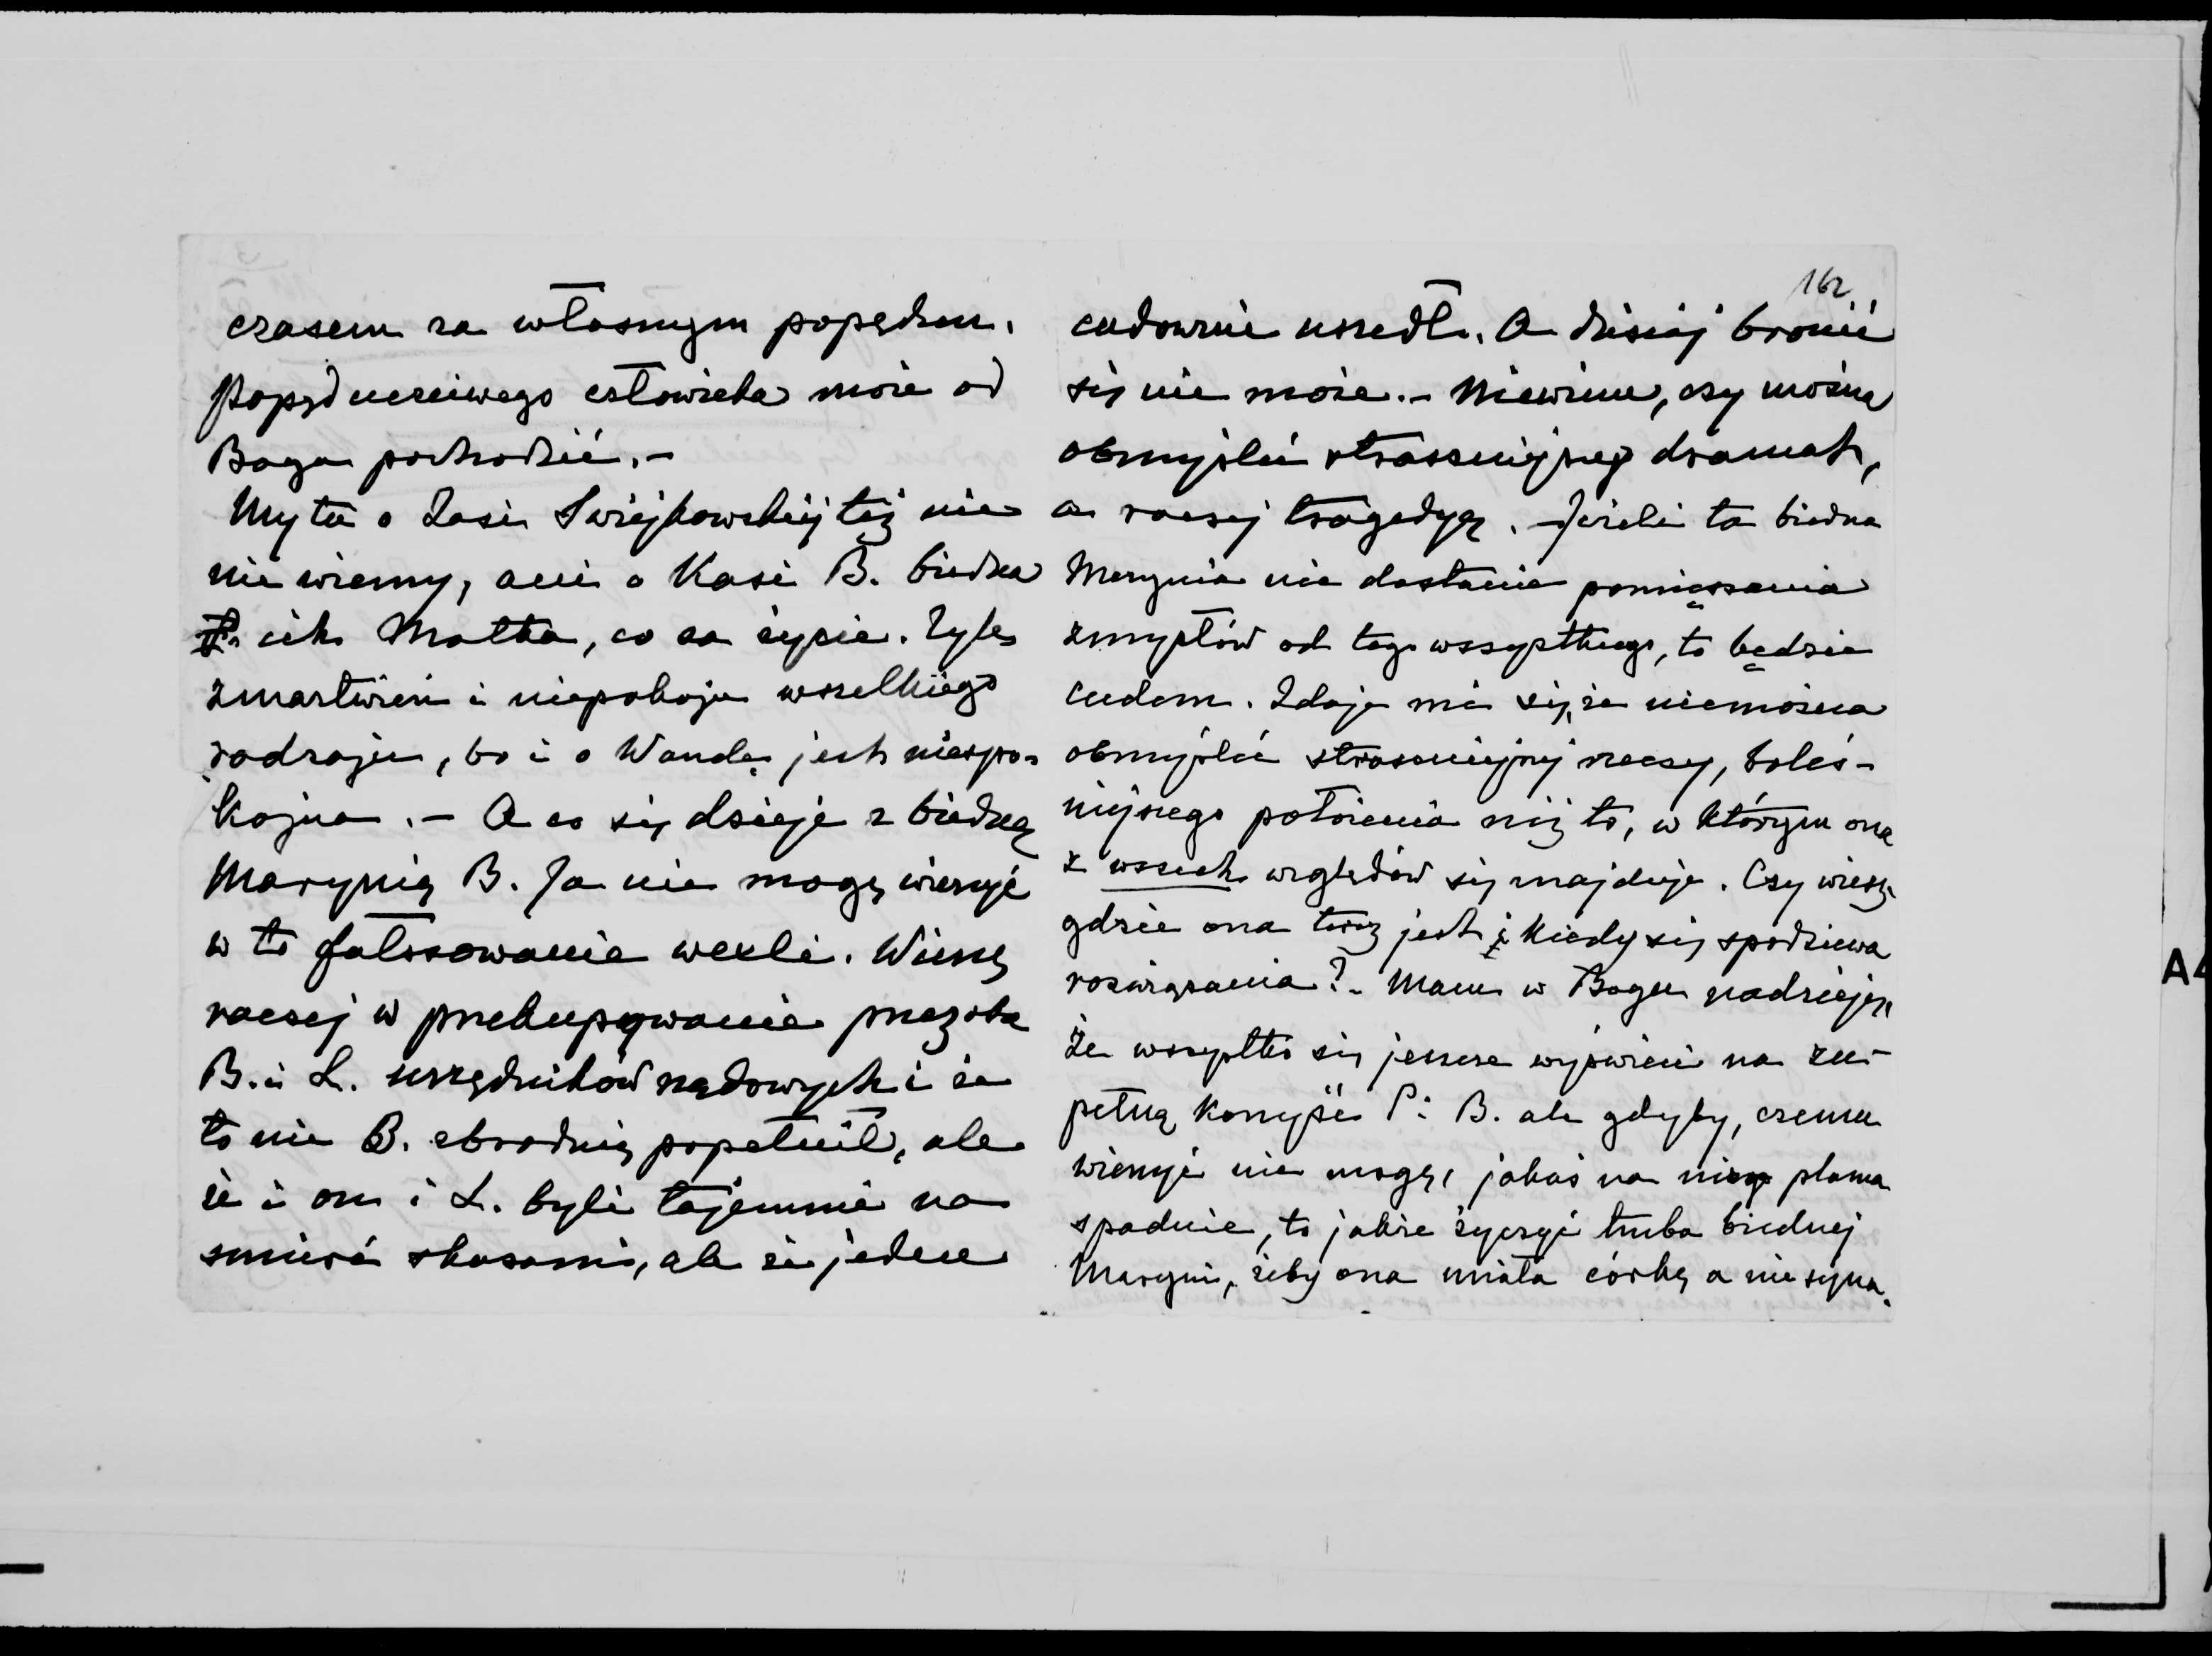 czasem za własnym popędem.
Popęd uczciwego człowieka może od
Boga pochodzić.-
My tu o Zosi Świejkowskiej też nic
nie wiemy, ani o Kasi B. biedna
ich Matka, co za życie. Tyle
zmartwień i niepokoju wszelkiego
rodzaju, bo i o Wandę jest niespo-
kojna.- A co się dzieje z biedną
Marynią B. Ja nie mogę wierzyć
w to fałszowanie weksli. Wierzę
raczej w przekupywanie przez oba
B. i L. urzędników rządowych i że
to nie B. zbrodnię popełnił, ale
że i on i L. byli tajemnie na
śmierć skazani, ale że jeden
162
cudownie uszedł. A dzisiaj bronić
się nie może.- Niewiem, czy można
obmyśleć straszniejszy dramat,
a raczej tragedyę. Jeżeli ta biedna
Marynia nie dostanie pomięszania
zmysłów od tego wszystkiego, to będzie
cudem. Zdaje mi się, że niemożna
obmyśleć straszniejszej rzeczy, boleś-
niejszego położenia niż to, w którym ona
z wszech względów się znajduje. Czy wiesz
gdzie ona teraz jest i kiedy się spodziewa
rozwiązania?- Mam w Bogu nadzieję,
że wszystko się jeszcze wyświeci na zu-
pełną korzyść P: B. ale gdyby, czemu
wierzyć nie mogę, jakaś na niego plama
spadnie, to jakże życzyć trzeba biednej
Maryni, żeby ona miała córkę a nie syna.
A4